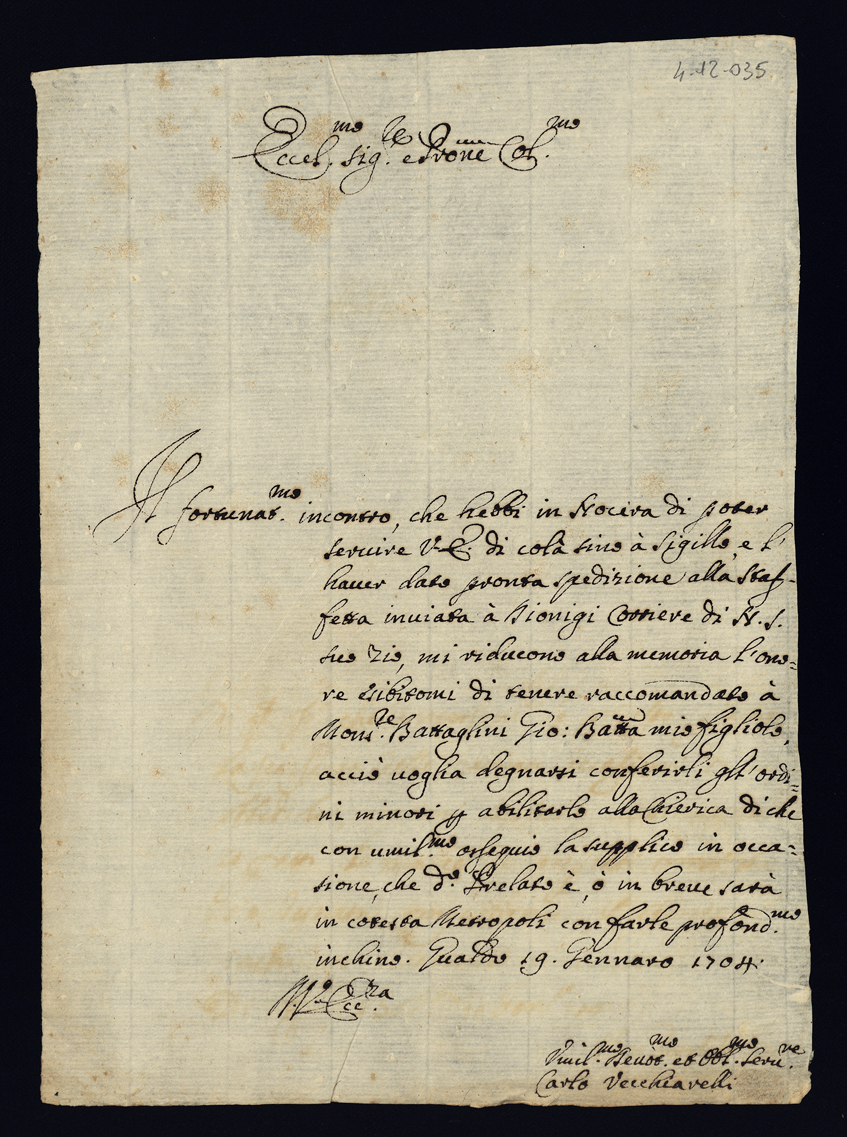 4-12-035
Eccel.mo Sig.re e Prone Col.mo
Il fortunat.mo incontro, che hebbi in Nocera di poter
servire V.E. di colà sino à Sigillo, e l'
haver dato pronta spedizione alla Staf-
fetta inviata à Dionigi Corriere di N.S.
suo Zio, mi riducono alla memoria l'ono=
re esibitomi di tenere raccomandato à
Mons.re Battaglini Gio: Batta mio figliolo,
acciò voglia degnarsi conferirli gl'ordi=
ni minori p abilitarlo alla Chierica di che
con umil.mo ossequio la supplico in occa=
sione, che d.o Prelato è, ò in breve sarà
in cotesta Metropoli con farle profond.mo
inchino. Gualdo 19. Gennaro 1704.
Di V. Ecc.za
Umil.mo Devot.mo et Obl.mo Serv.re
Carlo Vecchiarelli